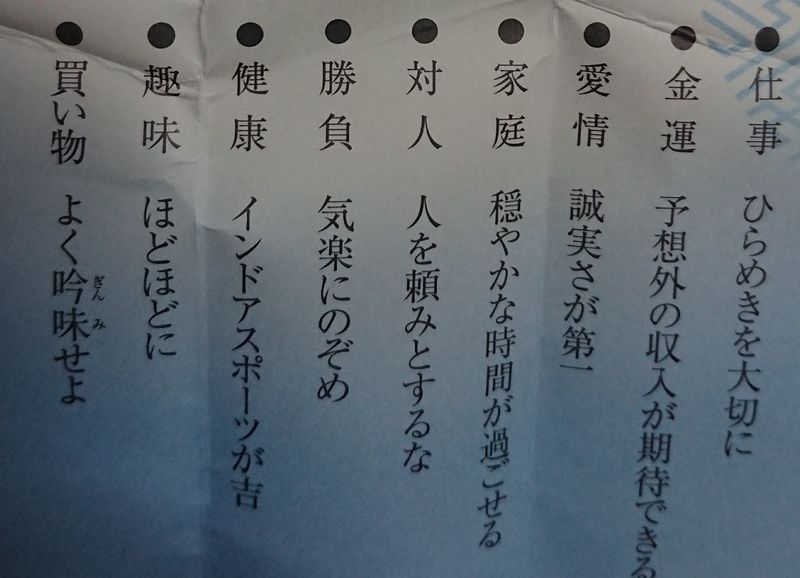 ●仕事 ひらめきを大切に
●金運 予想外の収入が期待できる
●愛情 誠実さが第一
●家庭 穏やかな時間が過ごせる
●対人 人を頼みとするな
●勝負 気楽にのぞめ
●健康 インドアスポーツが吉
●趣味 ほどほどに
●買い物 よく吟味せよ
ぎんみ